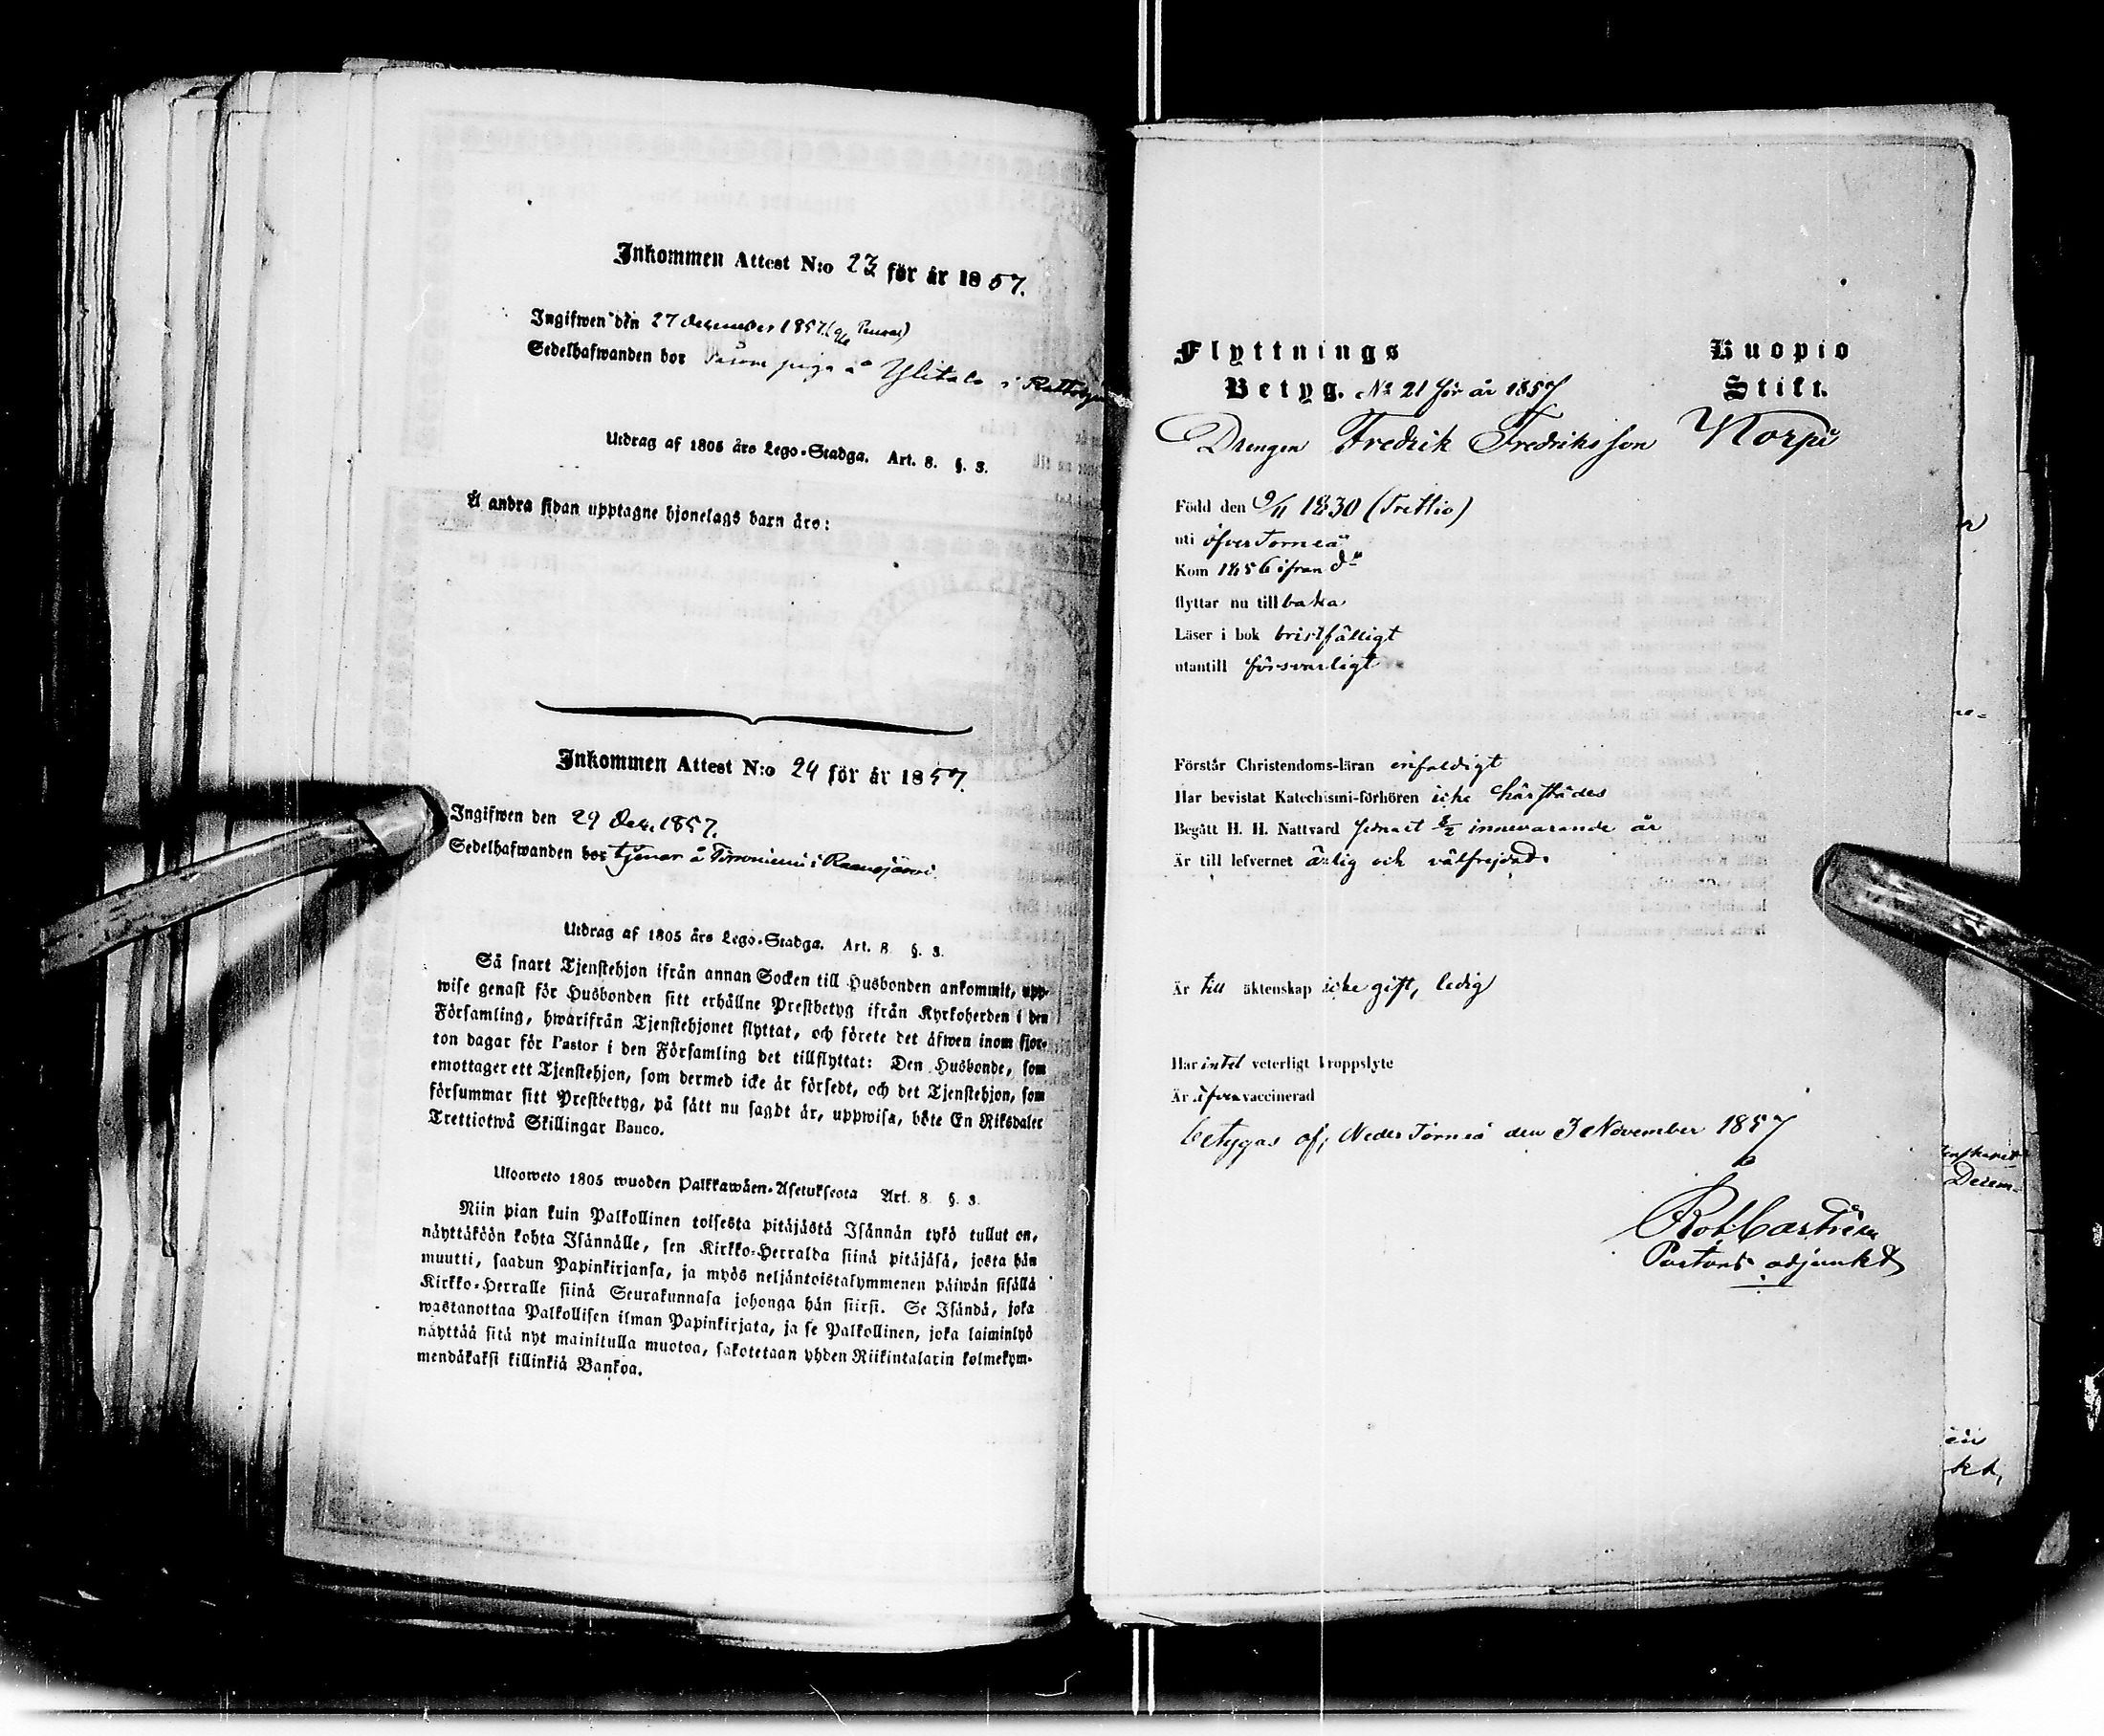 Inkommen Attest N:o 23 för år 1857.
Ingifwen den 27 December 1857
Sedelhafwanden bor Såsom piga å Ylitalo i
Utdrag af 1805 års Lego-Stadga. Art. 8. §. 3.
Å andra sidan upptagne hjonelags barn äro:
Inkommen Attest N:o 24 för år 1857.
Ingifwen den 29 Dec. 1857.
Sedelhafwanden bor tjenar å Törmäniemi i Raanujärvi.
Utdrag af 1805 års Lego-Stadga. Art. 8 §. 3.
Så snart Tjenstehjon ifrån annan Socken till Husbonden ankommit, upp-
wise genast för Husbonden sitt erhållne Prestbetyg ifrån Kyrkoherden i den
Församling, hwarifrån Tjenstehjonet flyttat, och förete det äfwen inom fjor-
ton dagar för Pastor i den Församling det tillflyttat: Den Husbonde, som
emottager ett Tjenstehjon, som dermed icke är försedt, och det Tjenstehjon, som
försummar sitt Prestbetyg, på sätt nu sagdt är, uppwisa, böte En Riksdaler
Trettiotwå Skillingar Banco.
Uloosweto 1805 wuoden Palkkawäen-Asetuksesta Art. 8 §. 3.
Niin pian kuin Palkollinen toisesta pitäjästä Isännän tykö tullut on,
näyttäköön kohta Isännälle, sen Kirkko-Herralda siinä pitäjäsä, josta hän
muutti, saadun Papinkirjansa, ja myös neljäntoistakymmenen päiwän sisällä
Kirkko-Herralle siinä Seurakunnasa johonga hän siirsi. Se Isändä, joka
wastanottaa Palkollisen ilman Papinkirjata, ja se Palkollinen, joka laiminlyö
näyttää sitä nyt mainitulla muotoa, sakotetaan yhden Riikintalarin kolmekym-
mendäkaksi killinkiä Bankoa.
Flyttnings Kuopio
Betyg. No 21 för år 1857 Stift.
Drengen Fredrik Fredriksson Korpi
Född den 9/11 1830 (Trettio)
uti öfver Torneå
Kom 1856 ifrån do
flyttar nu tillbaka
Läser i bok bristfälligt
utantill försvarligt
Förstår Christendoms-läran enfaldigt
Har bevistat Katechismi-förhören icke härstädes
Begått H. H. Nattvard sednast 8/2 innevarande år
Är till lefvernet ärlig och välfrejdad.
Är till äktenskap icke gift, ledig
Har intet veterligt kroppslyte
Är äfven vaccinerad
betygas af, Neder Torneå den 3 November 1857
Rob Castrén
Pastors adjunkt
Decem-